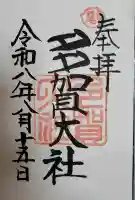 奉拝
多賀大社
令和八年八月十五日